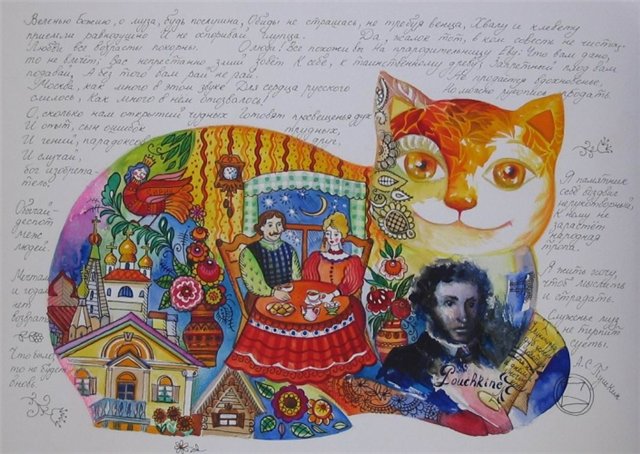 Веленью Божию, о муза, будь послушна, Обиды не страшась, не требуя венца, Хвалу и клевету
приемли равнодушно И не оспоривай глупца. Да, жалок тот, в ком совесть не чиста.
Любви все возрасты покорны. О люди! Все похожи вы На прародительницу Еву: Что вам дано,
то не влечёт; Вас непрестанно змий зовёт К себе, к таинственному древу; Запретный плод вам
подавай, А без того вам рай не рай. Не продаётся вдохновенье,
Москва, как много в этом звуке Для сердца русского Но можно рукопись продать.
слилось, Как много в нём отозвалось!
О, сколько нам открытий чудных Готовят просвещенья дух
И опыт, сын ошибок трудных,
И гений, парадоксов друг,
И случай,
бог изобрета-
тель.
Обычай-
деспот
меж
людей.
Мечтам
и годам
нет
возврата
Что было,
то не будет
вновь.
Я памятник
себе воздвиг
нерукотворный,
К нему не
зарастёт
народная
тропа.
Я жить хочу,
чтоб мыслить
и страдать.
Служенье муз
не терпит
суеты.
А.С. Пушкин
Pouchkine